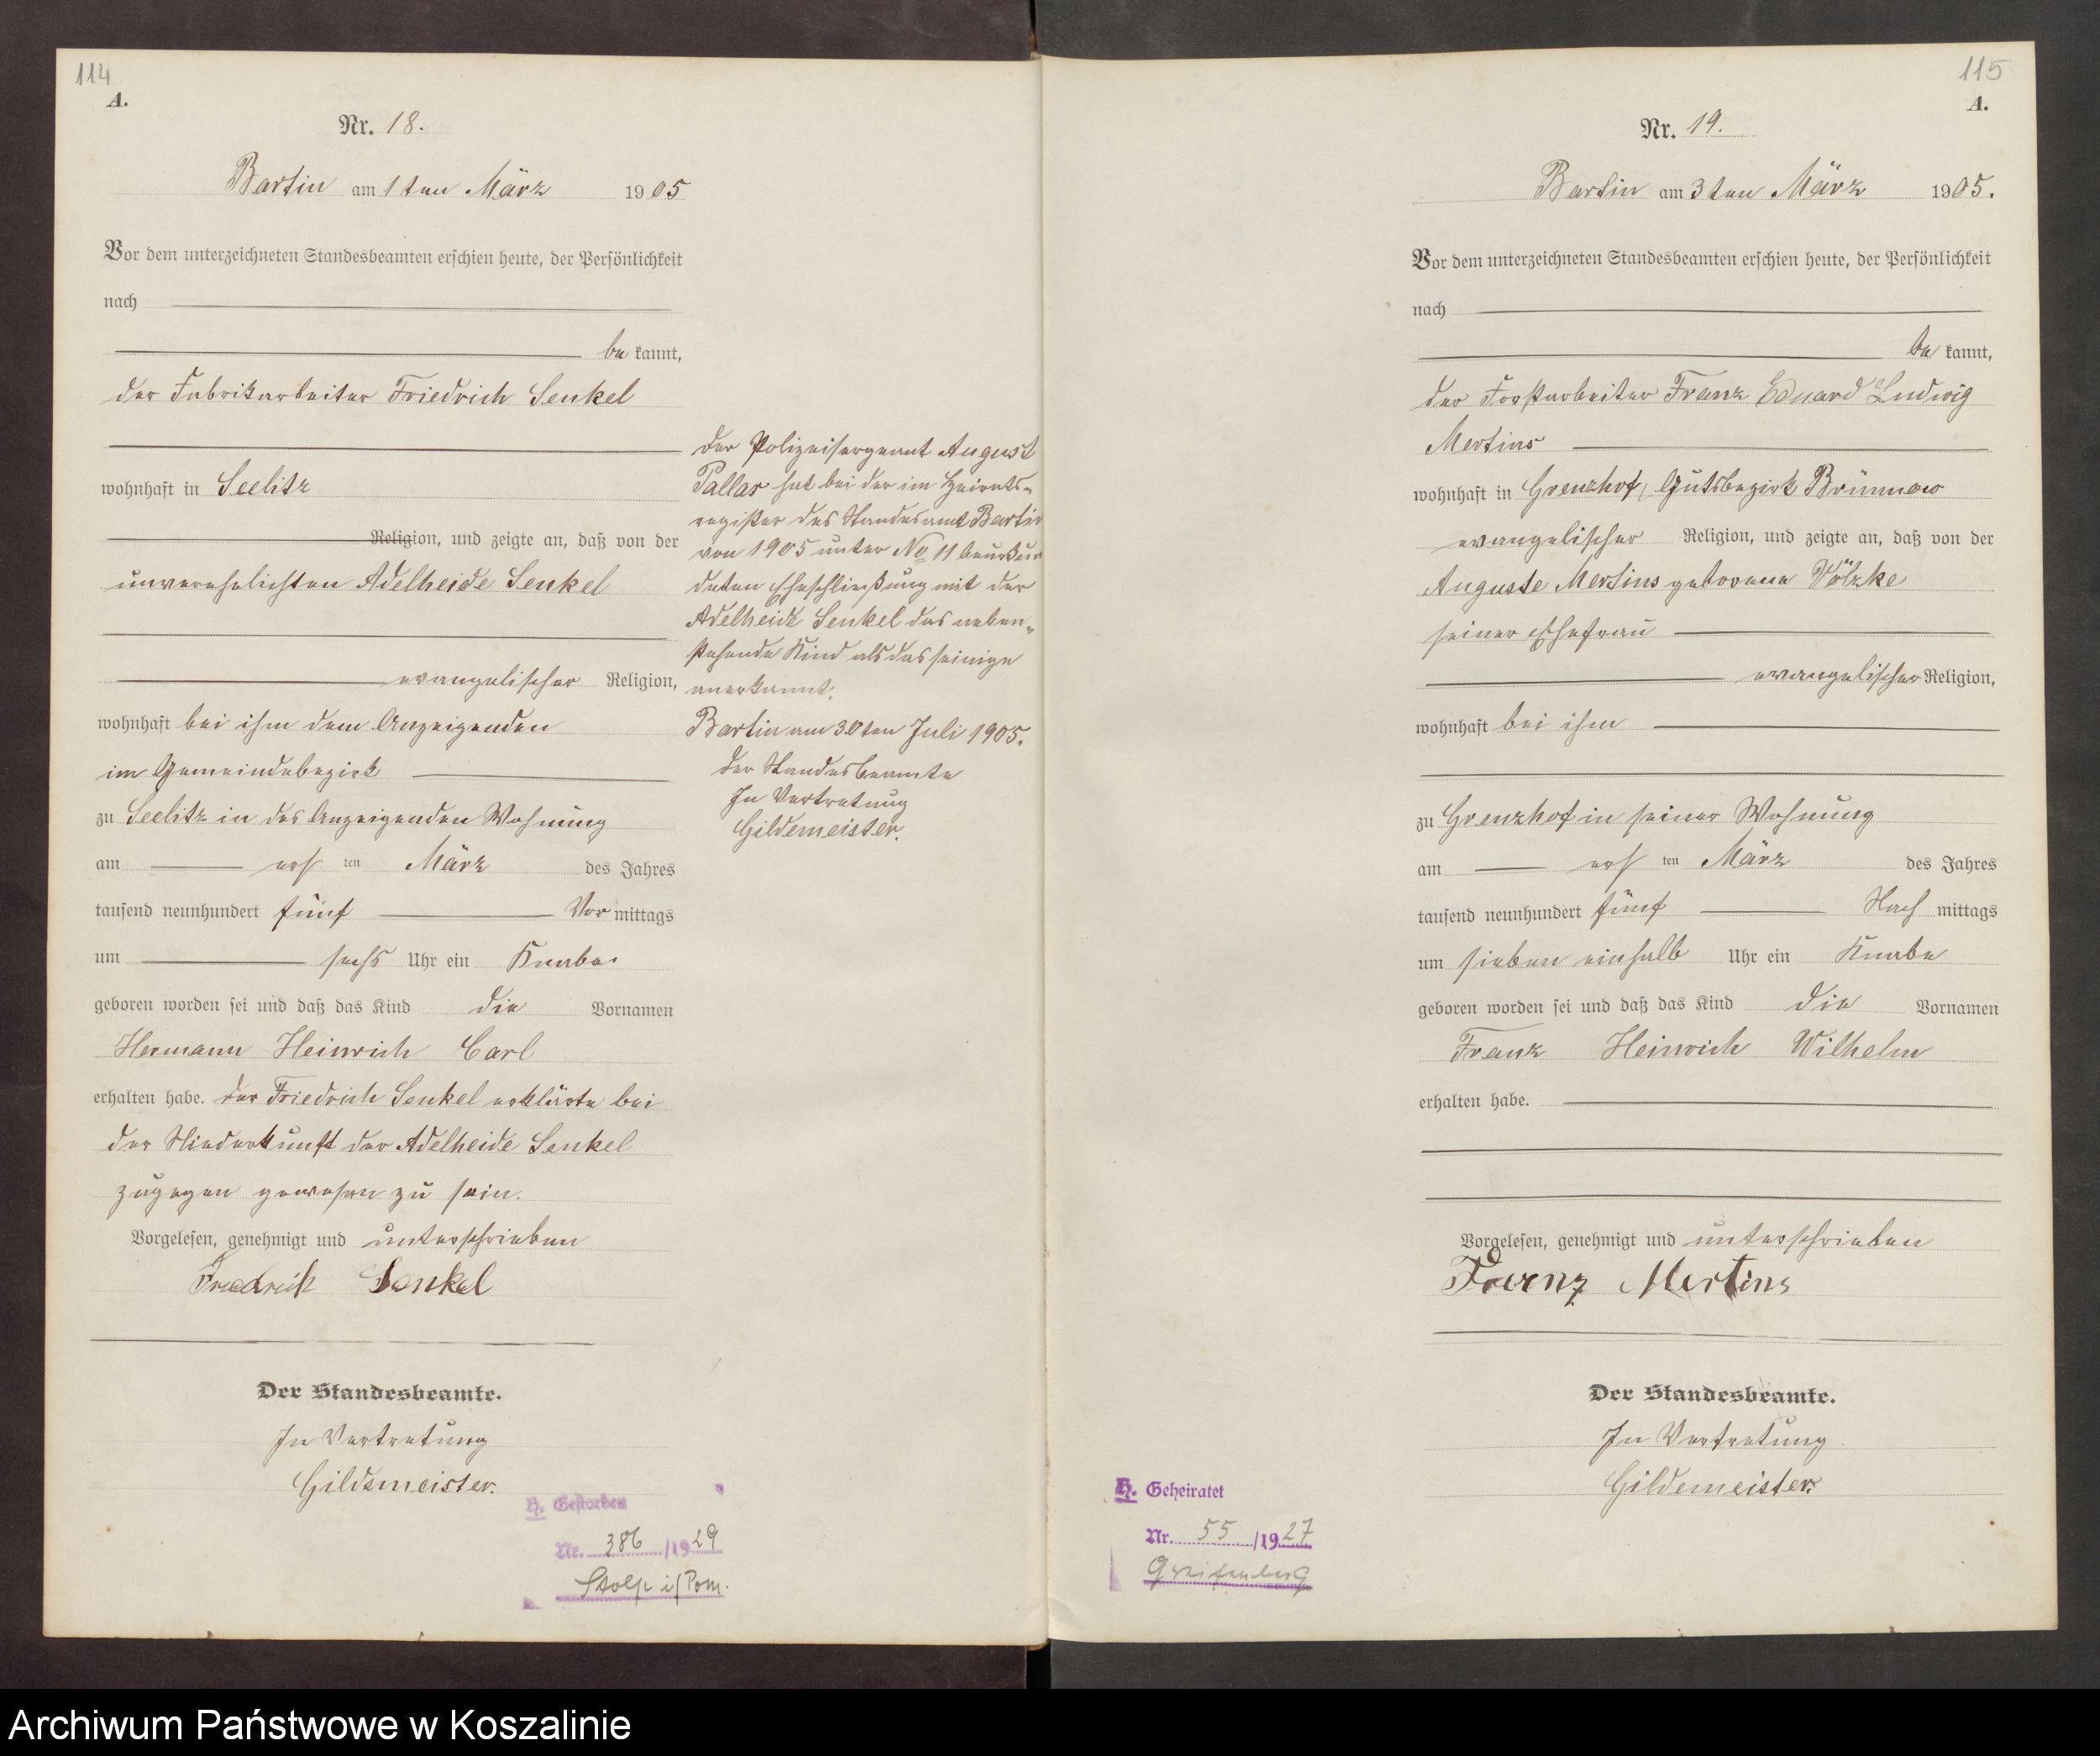 114
A.
Nr. 18.
Bartin am 1ten März 1905
Vor dem unterzeichneten Standesbeamten erschien heute, der Persönlichkeit
nach
bekannt,
der Fabrikarbeiter Friedrich Senkel
wohnhaft in Seelitz
Religion, und zeigte an, daß von der
unverehelichten Adelheide Senkel
evangelischer Religion,
wohnhaft bei ihm dem Anzeigenden
im Gemeindebezirk
zu Seelitz in des Anzeigenden Wohnung
am ersten März des Jahres
tausend neunhundert fünf Vormittags
um sechs Uhr ein Knabe
geboren worden sei und daß das Kind die Vornamen
Hermann Heinrich Carl
erhalten habe. Der Friedrich Senkel erklärte bei
der Niederkunft der Adelheide Senkel
zugegen gewesen zu sein.
Vorgelesen, genehmigt und unterschrieben
Friedrich Senkel
Der Standesbeamte.
In Vertretung
Gildemeister.
H. Gestorben
Nr. 386/1929
Stolp i/Pom.
Der Polizeisergeant August
Pallas hat bei der im Heirats-
register des Standesamt Bartin
von 1905 unter No 11 beurkun
deten Eheschließung mit der
Adelheide Senkel das neben-
stehende Kind als das seinige
anerkannt.
Bartin am 30ten Juli 1905.
Der Standesbeamte
In Vertretung
Gildemeister.
115
A.
Nr. 19.
Bartin am 3ten März 1905.
Vor dem unterzeichneten Standesbeamten erschien heute, der Persönlichkeit
nach
bekannt,
der Forstarbeiter Franz Eduard Ludwig
Mertins
wohnhaft in Grenzhof, Gutsbezirk Brünnow
evangelischer Religion, und zeigte an, daß von der
Auguste Mertins geborene Völzke
seiner Ehefrau
evangelischer Religion,
wohnhaft bei ihm
zu Grenzhof in seiner Wohnung
am ersten März des Jahres
tausend neunhundert fünf Nachmittags
um sieben einhalb Uhr ein Knabe
geboren worden sei und daß das Kind die Vornamen
Franz Heinrich Wilhelm
erhalten habe.
Vorgelesen, genehmigt und unterschrieben
Franz Mertins
Der Standesbeamte.
In Vertretung
Gildemeister.
H. Geheiratet
Nr. 55/1927
Greifenberg
Archiwum Państwowe w Koszalinie